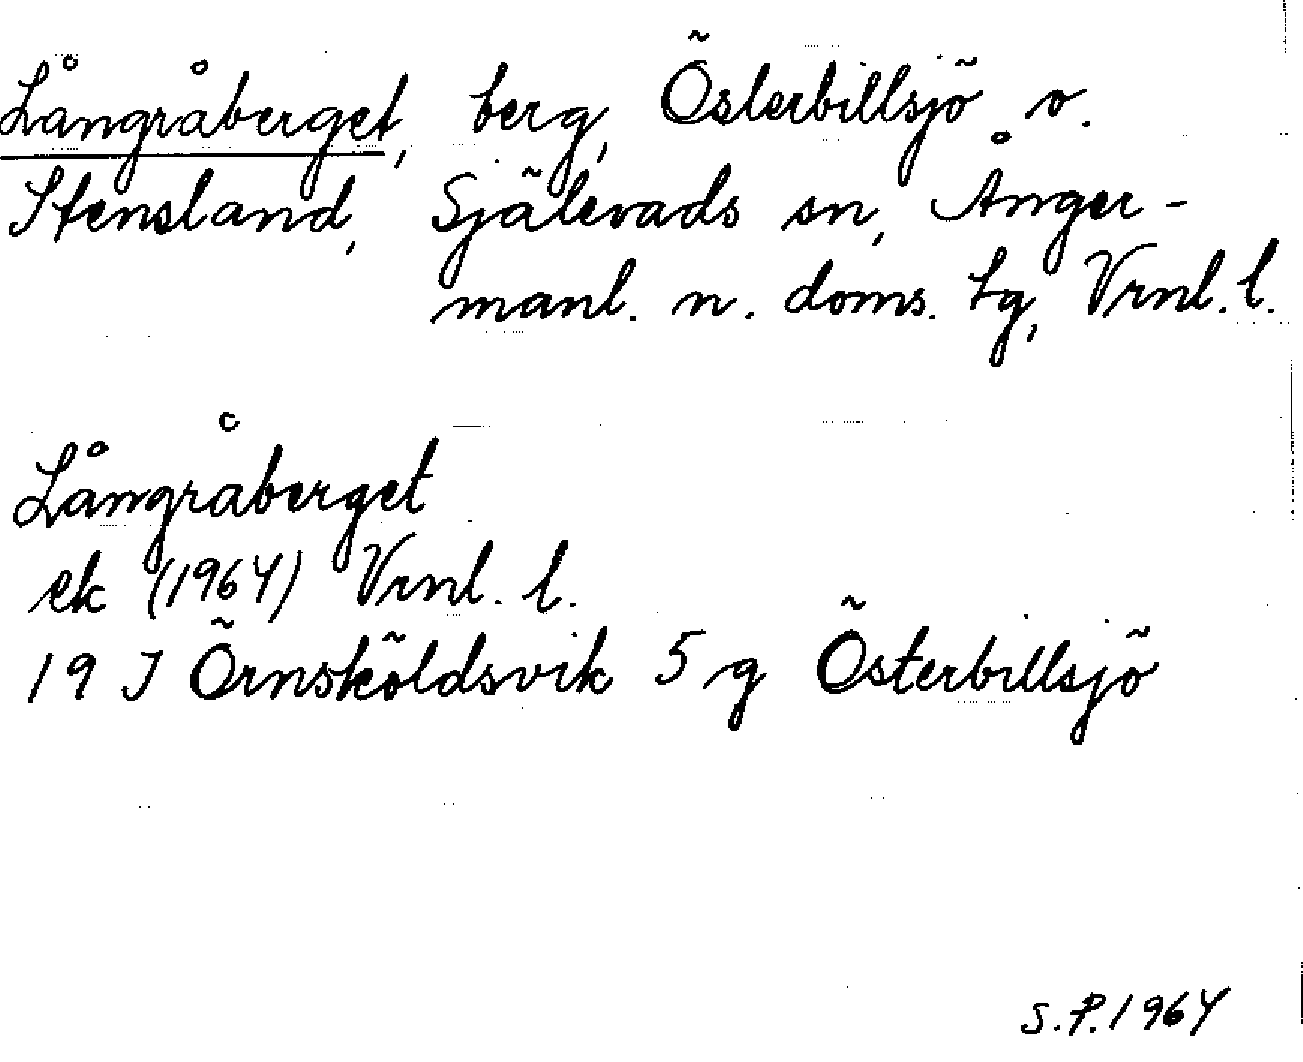 Långråberget, berg, Österbillsjö o.
Stensland, Själevads sn, Ånger-
manl. n. doms. tg, Vrnl. l.
Långråberget
ek (1964) Vrnl. l.
19 J Örnsköldsvik 5 g Österbillsjö
S.P. 1964